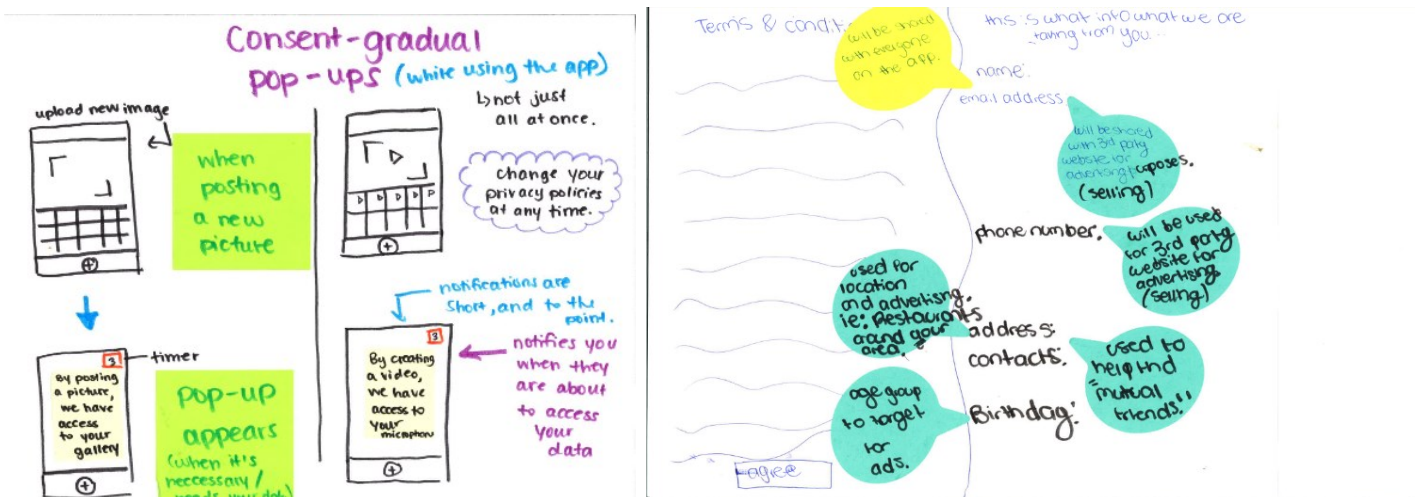 Consent-gradual
pop-ups (while using the app)
↳not just
all at once.
upload new image
when
posting
a new
picture
change your
privacy policies
at any time.
notifications are
short, and to the
point.
timer
3
By posting
a picture,
we have
access
to your
gallery
pop-up
appears
(when it's
neccessary /
3
By creating
a video,
we have
access to
your
microphon
notifies you
when they
are about
to access
your
data
Terms & condit
this is what info what we are
taking from you...
will be shared
with everyone
on the app.
name:
email address.
will be shared
with 3rd party
website for
advertising
(selling)
phone number.
will be used
for 3rd party
website for
advertising
(selling)
used for
location
and advertisng.
ie: Restaurants
around your
area.
address:
contacts:
used to
help find
"mutual
friends".
age group
to target
for
ads.
Birthday:
agree